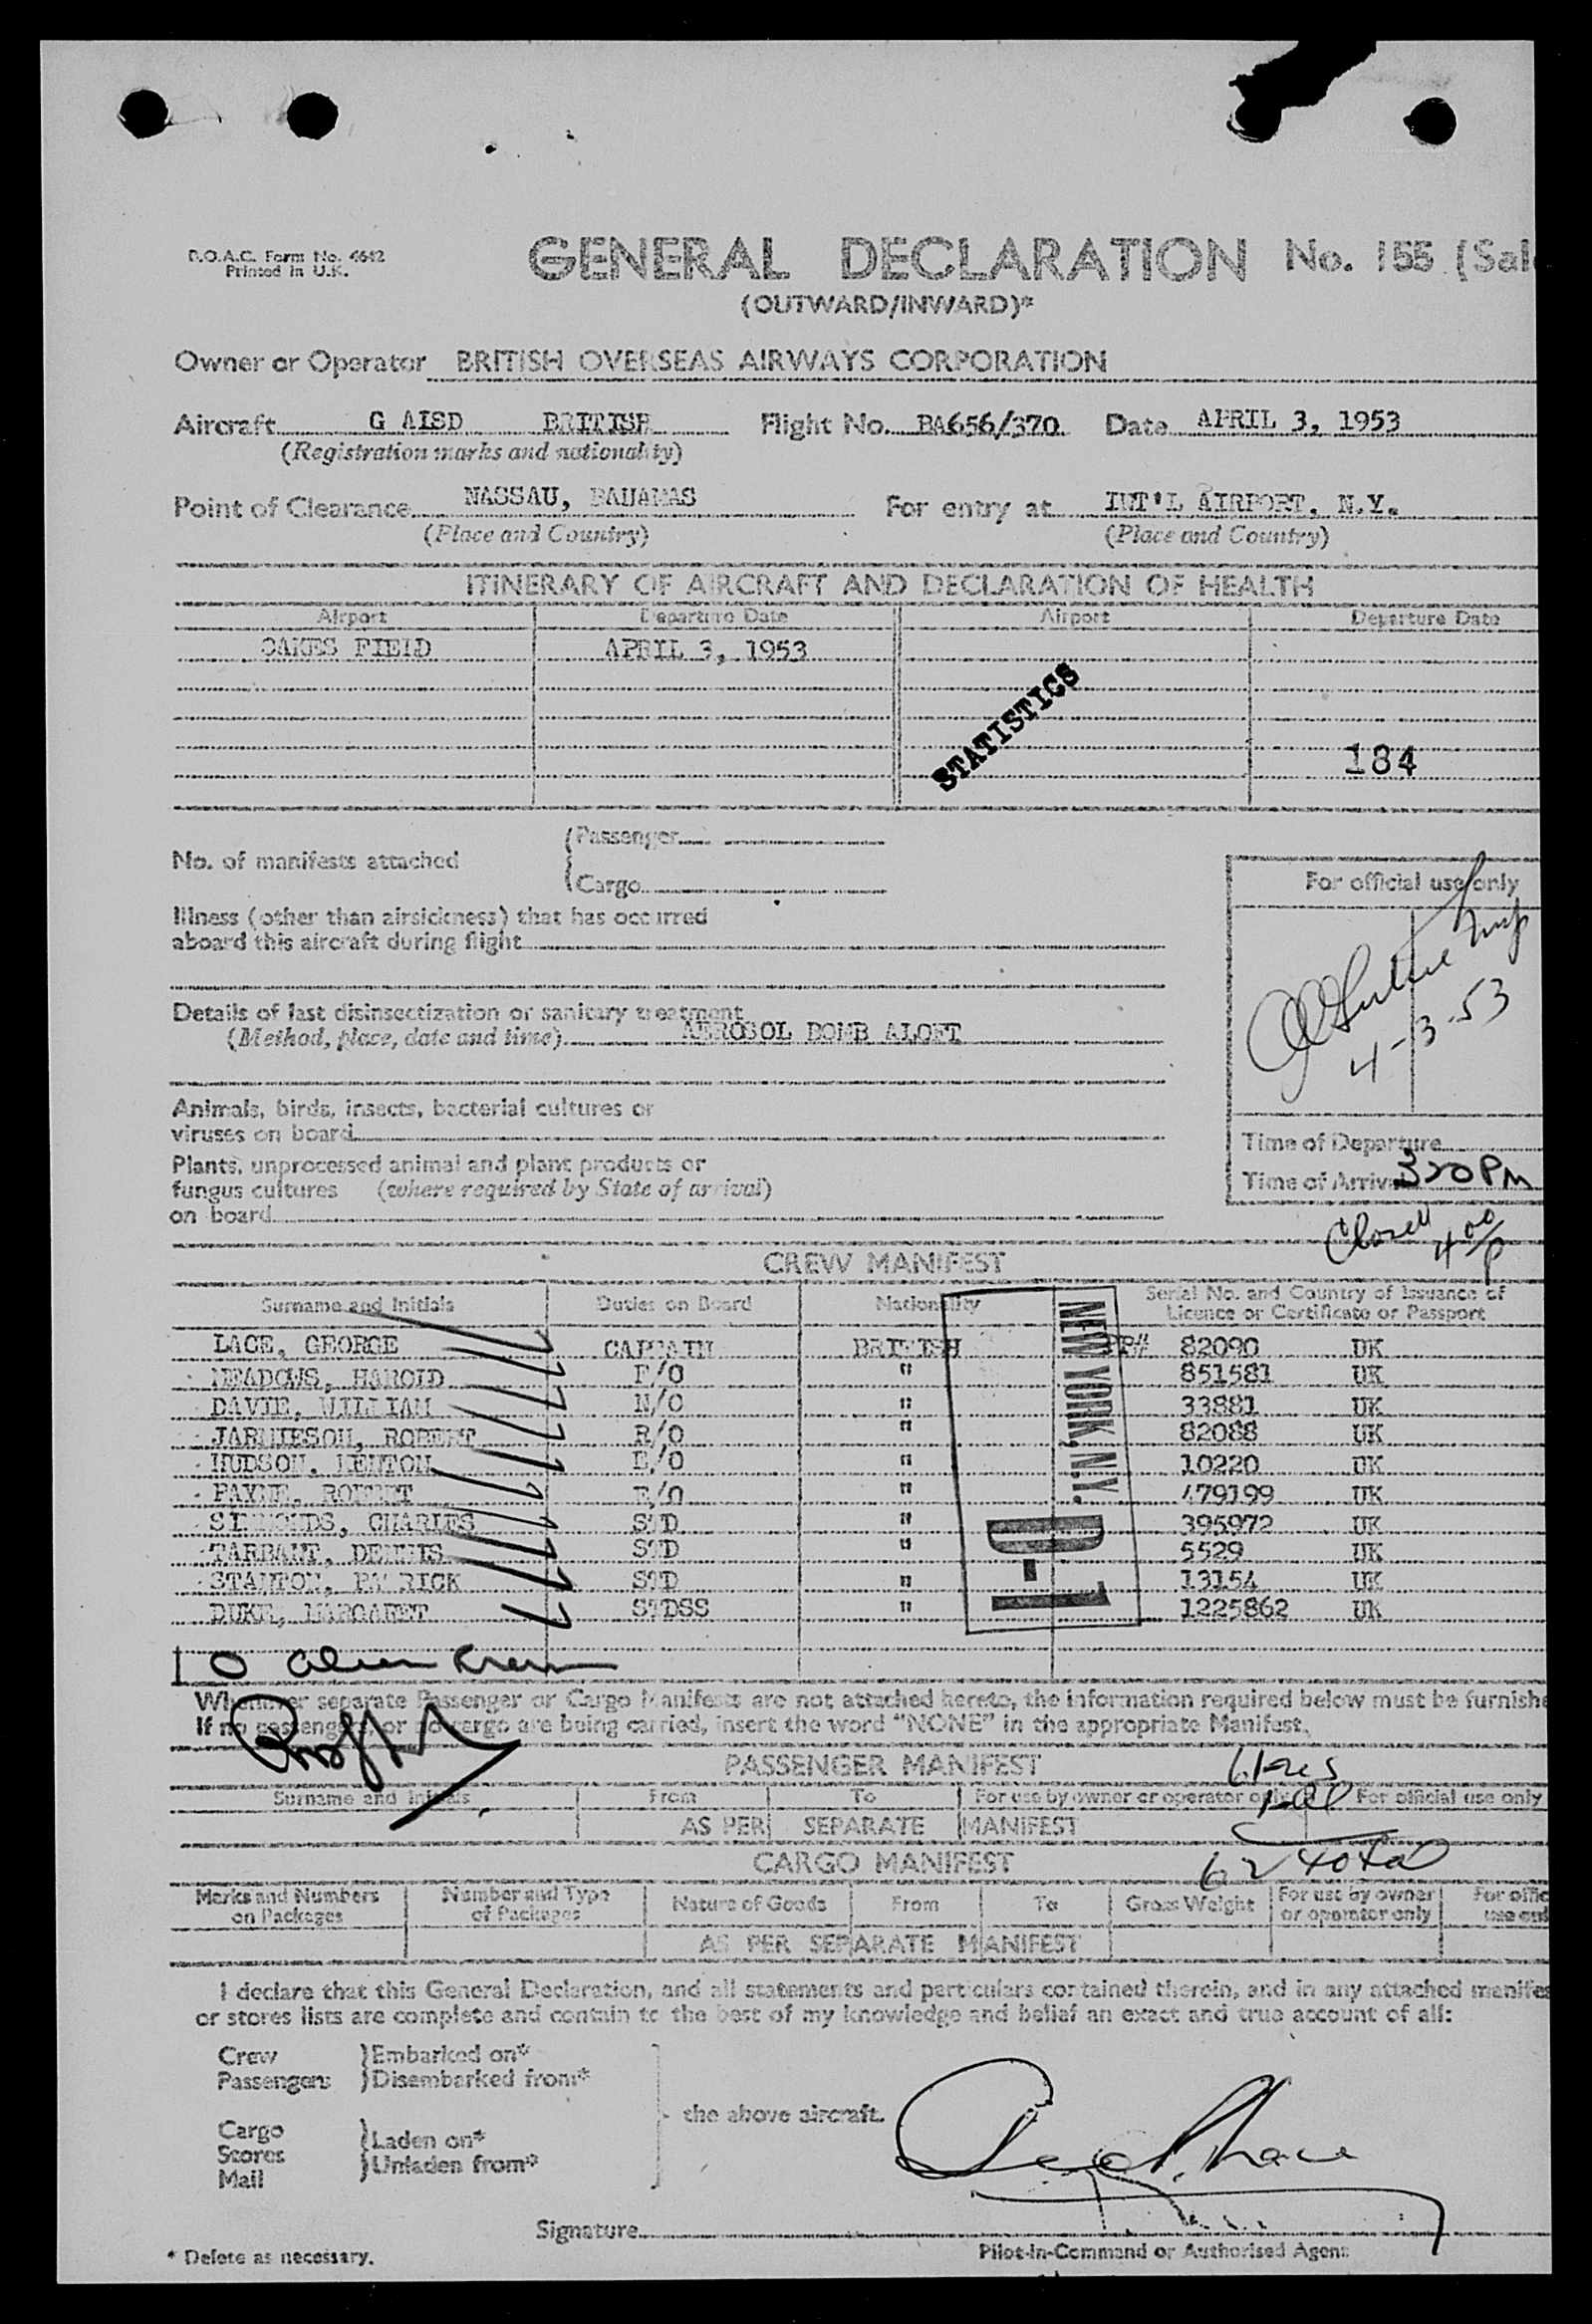 B.O.A.C. Form No. 4642
Printed in U.K.
GENERAL DECLARATION No. 155 (Sal
(OUTWARD/INWARD)*
Owner or Operator BRITISH OVERSEAS AIRWAYS CORPORATION
Aircraft G AISD BRITISH Flight No. BA656/370 Date APRIL 3, 1953
(Registration marks and nationality)
Point of Clearance NASSAU, BAHAMAS For entry at INT'L AIRPORT, N.Y.
(Place and Country) (Place and Country)
ITINERARY OF AIRCRAFT AND DECLARATION OF HEALTH
Airport Departure Date Airport Departure Date
OAKES FIELD APRIL 3, 1953
STATISTICS
184
No. of manifests attached
Passenger
Cargo
For official use only
Illness (other than airsickness) that has occurred
aboard this aircraft during flight
Details of last disinsectization or sanitary treatment
(Method, place, date and time) AEROSOL BOMB ALOFT
4-3-53
Animals, birds, insects, bacterial cultures or
viruses on board
Time of Departure
Plants, unprocessed animal and plant products or
fungus cultures (where required by State of arrival)
on board
Time of Arrival 320 PM
Closed 4 00/P
CREW MANIFEST
Surname and Initials Duties on Board Nationality Serial No. and Country of Issuance of
Licence or Certificate or Passport
LACE, GEORGE CAPTAIN BRITISH PP# 82090 UK
MEADOWS, HAROLD F/O " 851581 UK
DAVIE, WILLIAM N/O " 33881 UK
JARMIESON, ROBERT R/O " 82088 UK
HUDSON, KENTON E/O " 10220 UK
PAYNE, ROBERT E/O " 479199 UK
SIMMONDS, CHARLES STD " 395972 UK
TARRANT, DENNIS STD " 5529 UK
STANTON, PATRICK STD " 13154 UK
DUKE, MARGARET STDSS " 1225862 UK
NEW YORK, N.Y.
D-1
10 alien Crew
Whenever separate Passenger or Cargo Manifests are not attached hereto, the information required below must be furnishe
If no passengers or no cargo are being carried, insert the word "NONE" in the appropriate Manifest.
PASSENGER MANIFEST
Surname and Initials From To For use by owner or operator only For official use only
AS PER SEPARATE MANIFEST
62 total
CARGO MANIFEST
Marks and Numbers on Packages Number and Type of Packages Nature of Goods From To Gross Weight For use by owner or operator only For offic
AS PER SEPARATE MANIFEST
I declare that this General Declaration, and all statements and particulars contained therein, and in any attached manifes
or stores lists are complete and contain to the best of my knowledge and belief an exact and true account of all:
Crew Embarked on*
Passengers Disembarked from*
the above aircraft.
Cargo
Stores
Mail
Laden on*
Unladen from*
Signature
Pilot-in-Command or Authorised Agent
* Delete as necessary.